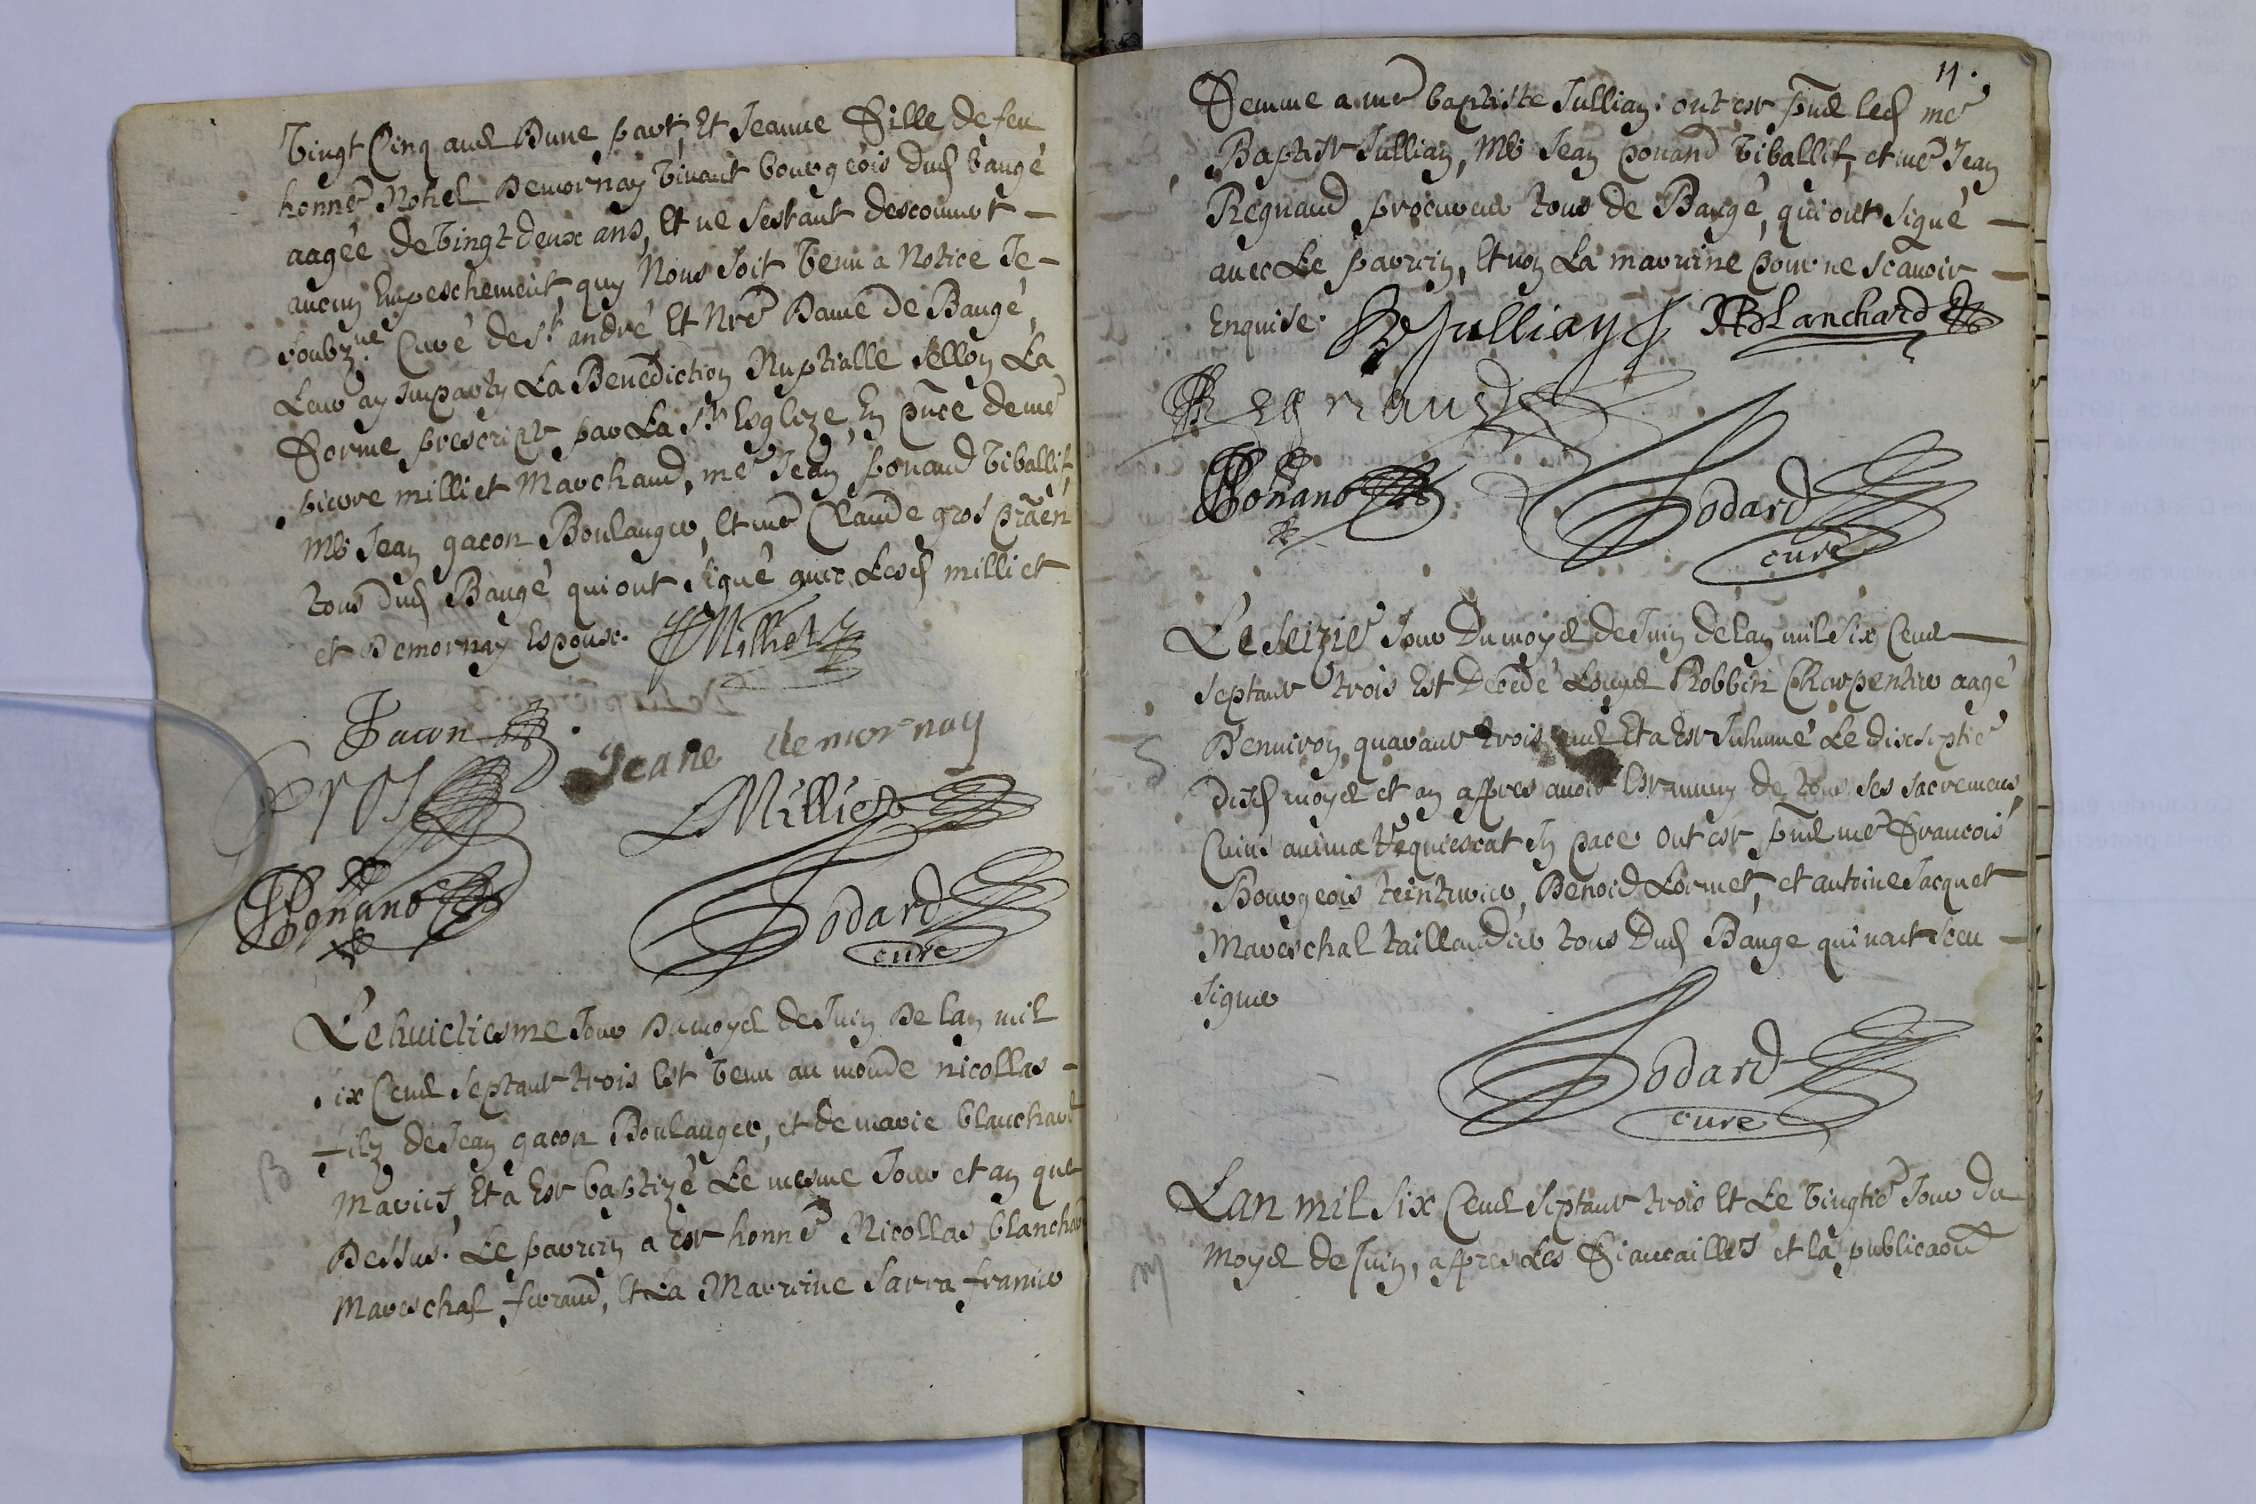 Vingt Cinq ans Dune part, Et Jeanne Fille de feu
honnê Nohel Demornay Vivant bourgeois dud baugé
aagée de Vingt deux ans, Et ne sestant descouvert
aucun Empeschement, quy Nous soit Venu a Notice Je
soubzné Curé de St andré Et Nre Dame de Baugé,
Leur ay Imparty La Benediction Nuptialle sellon La
Forme prescripte par La Ste Esglize, En pnce de me
pierre milliet Marchand, me Jean ponand Viballif,
Me Jean gacon Boulanger, Et me Claude gros praēn
tous dud Baugé qui ont signé avec Lesd milliet
et Demornay Espoux. Milliet
Gacon
Jeane demornay
Gros
Milliet
Ponand
Godard
curé
Le huictiesme Jour Du moys de Juin De lan mil
six Cens septante trois Est Venu au monde nicollas
filz de Jean gacon Boulanger, et de marie blanchard
B
Mariés, Et a Este baptizé Le mesme Jour et an que
Dessus. Le parrin a este honnê Nicollas blanchard
Mareschal ferrand, Et La Marrine Sarra franier
11.
Femme a me baptiste Jullian. ont este pns led me
Baptiste Jullian, Me Jean ponand Viballif, et me Jean
Regnaud procureur tous de Baugé, qui ont signé
avec Le parrin, Et non La marrine pour ne scavoir
Enquise. B Jullian JBLanchard
Regnaud
Ponand
Godard
curé
Le seizie Jour Du moys de Juin de lan mil six Cens
septante trois Est Decedé Louys Robbin Charpentier aagé
Denviron quarante trois ans Et a Este Inhumé Le dixseptie
S
disd moys et an appres avoir Este muny de tous ses sacremens,
Cuius anima Requiescat In pace ont este pns me Francois
Bourgeois teinturier, Benoid Lormet, et antoine Jacquet
Mareschal taillandier tous Dud Baugé qui nont sceu
signer
Godard
curé
Lan mil six Cens septante trois Et Le Vingtie Jour du
M
Moys de Juin, appres Les Fiancailles et la publicaon